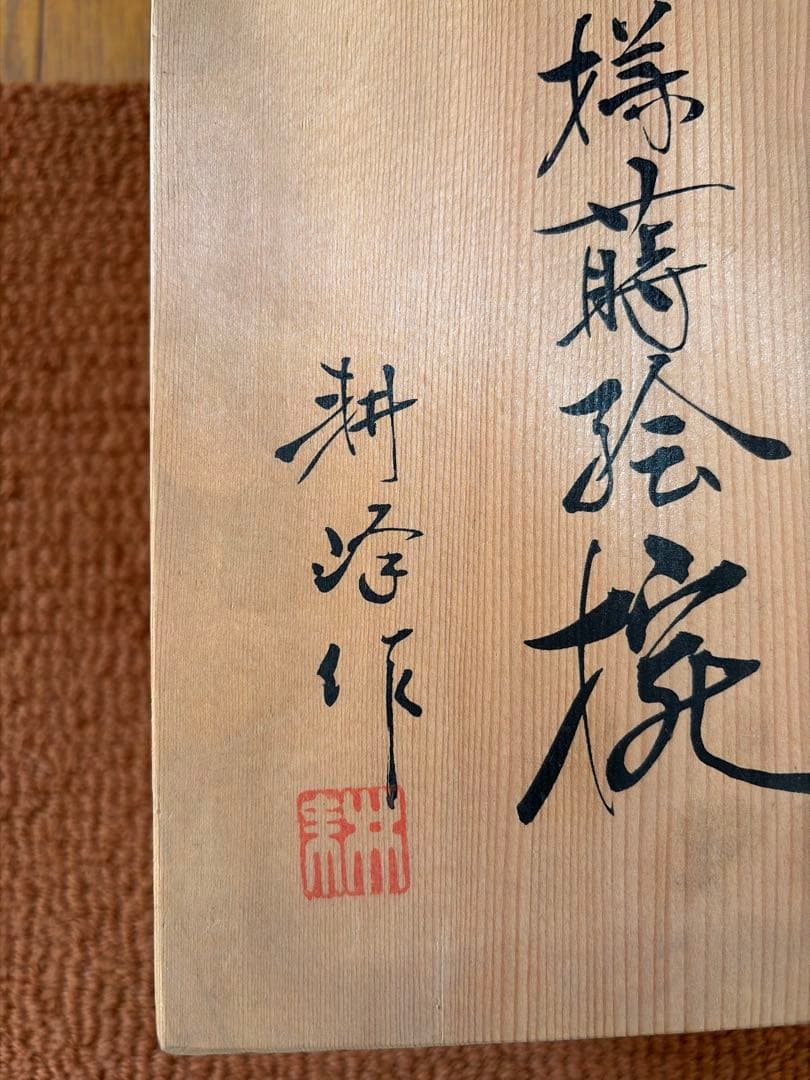 様蒔絵椀
耕峰作
耕